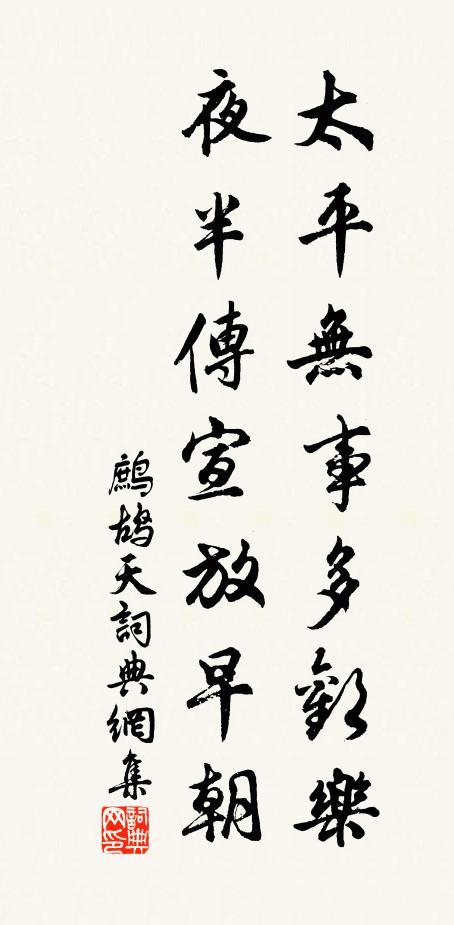 太平無事多歡樂
夜半傳宣放早朝
鷓鴣天詞典網集
詞典网印